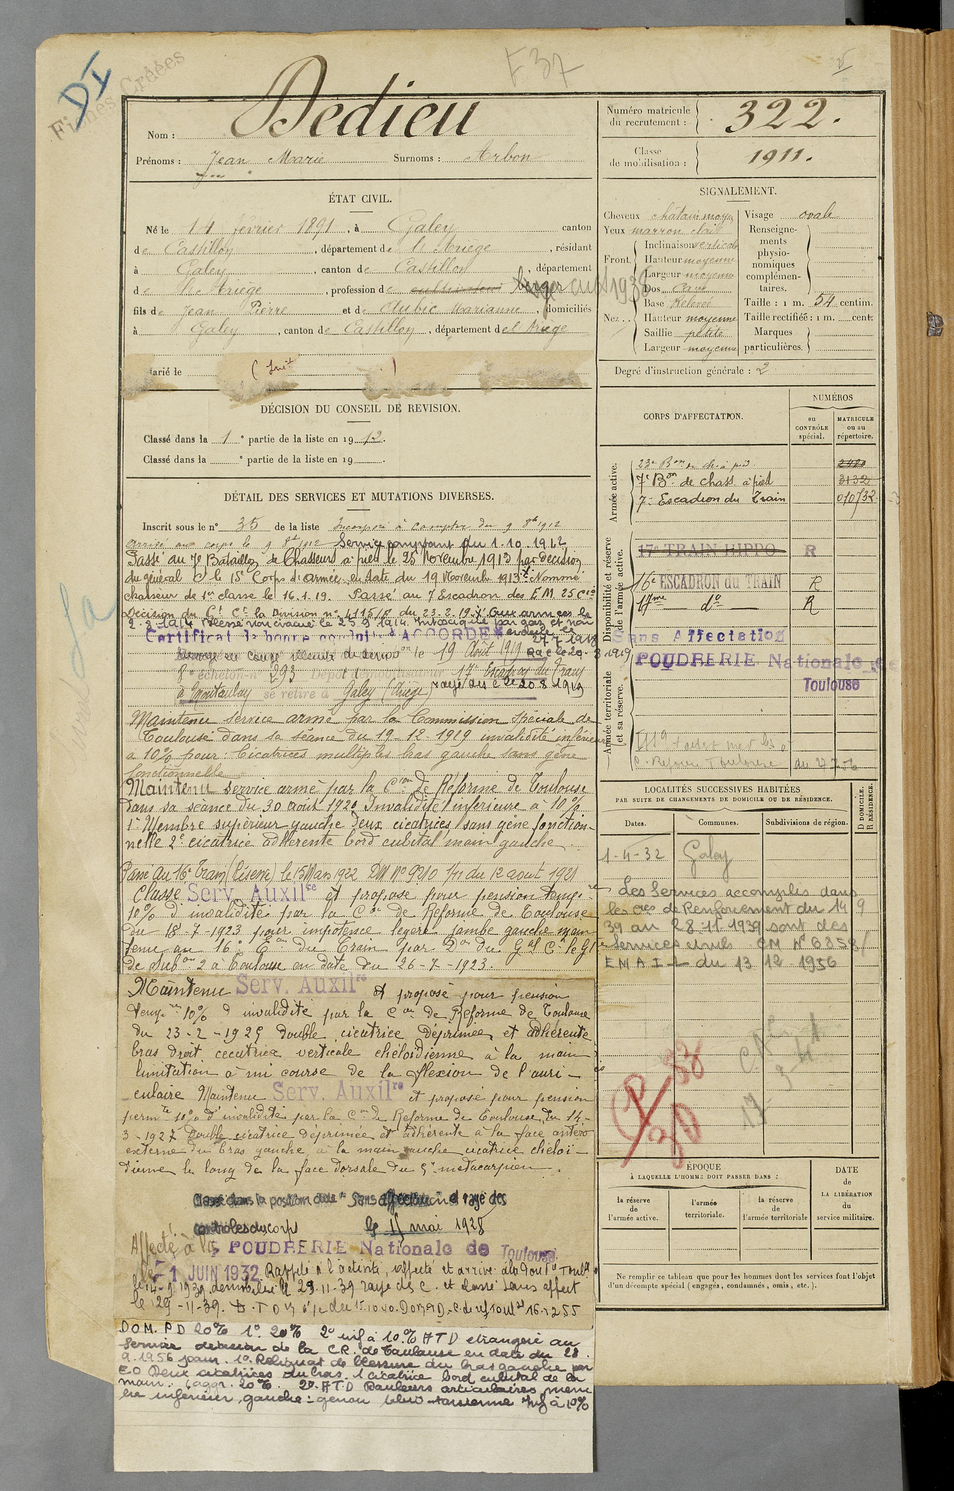 DI
Fiches Créées
F 37
Nom : Dedieu
Prénoms : Jean Marie Surnoms : Arbon
Numéro matricule du recrutement : 322.
Classe de mobilisation : 1911.
ÉTAT CIVIL.
Né le 14 février 1891, à Galey canton
de Castillon, département de l'Ariège, résidant
à Galey, canton de Castillon, département
de l'Ariège, profession de cultivateur berger
fils de Jean Pierre et de Aubic Marianne, domiciliés
à Galey, canton de Castillon, département de l'Ariège
Marié le
DÉCISION DU CONSEIL DE REVISION.
Classé dans la 1e partie de la liste en 1912.
Classé dans la e partie de la liste en 19 .
DÉTAIL DES SERVICES ET MUTATIONS DIVERSES.
Inscrit sous le n° 35 de la liste Incorporé à compter du 9 8bre 1912
arrivé au corps le 9 8bre 1912 Service comptant du 1.10.1912
Passé au 7e Bataillon de Chasseurs à pied le 25 Novembre 1913 par décision
du général Ct le 15e Corps d'armée en date du 19 Novembre 1913. Nommé
chasseur de 1ère classe le 16.1.19. Passé au 7 Escadron des E.M. 25 Cie
Décision du Gl Ct la Division n° 4115/R du 23.2.19. Aux armées le
Certificat de bonne conduite ACCORDÉ
le 19 Août 1919
1er échelon n° 293 Dépôt démobilisateur 17e Escadron du Train
à Montauban se retire à Galey (Ariège)
Maintenu service armé par la Commission spéciale de
Toulouse dans sa séance du 19-12-1919 invalidité inférieure
à 10% pour : Cicatrices multiples bras gauche sans gêne
fonctionnelle
Maintenu service armé par la Con de Réforme de Toulouse
dans sa séance du 30 août 1920 Invalidité inférieure à 10%
1° Membre supérieur gauche deux cicatrices sans gêne fonction-
nelle 2° cicatrice adhérente bord cubital main gauche.
Passé au 16e Train (Lisere) le 15 Mars 1922 DM n° 9210 du 12 août 1921
Classé Serv. Auxilre et proposé pour pension temp.re
10% d'invalidité par la Con de Réforme de Toulouse
du 18-7-1923 pour impotence légère jambe gauche main
tenu au 16e Eon du Train par Don du Gal Ct le Gr
de Subon 2 à Toulouse en date du 26-7-1923.
Maintenu Serv. Auxilre et proposé pour pension
temp.re 10% d'invalidité par la Con de Réforme de Toulouse
du 23-2-1925 double cicatrice déprimée et adhérente
bras droit, cicatrice verticale chéloïdienne à la main
limitation à mi course de la flexion de l'auri-
culaire Maintenu Serv. Auxilre et proposé pour pension
perm.te 10% d'invalidité par la Con de Réforme de Toulouse du 14-
3-1927 Double cicatrice déprimée et adhérente à la face antéro
externe du bras gauche à la main gauche cicatrice chéloï-
dienne le long de la face dorsale du 5e métacarpien.
Classé dans la position dite "Sans affectation" et rayé des
contrôles du corps le mai 1928
Affecté à la POUDRERIE Nationale de Toulouse
1 JUIN 1932 Rappelé à l'activité, affecté et arrivé
démobilisé le 29.11.39 rayé des c. et classé sans affect
le 29-11-39.
DOM. P D 20% 1°. 20% 2° inf à 10% H T D étrangère au
service décision de la C.R. de Toulouse en date du 28.
9.1956 pour. 1° Reliquat de blessure du bras gauche par
E O Deux cicatrices du bras. 1 cicatrice bord cubital de la
main. 20% 2° H.T.D Douleurs articulaires mem
bre inférieur gauche : genou tibio-tarsienne inf à 10%
SIGNALEMENT.
Cheveux châtain moyen
Yeux marron clair
Front. Inclinaison verticale
Hauteur moyenne
Largeur moyenne
Nez... Dos cave
Base relevée
Hauteur moyenne
Saillie petite
Largeur moyenne
Visage ovale
Renseignements physionomiques complémentaires.
Taille : 1 m. 54 centim.
Taille rectifiée : 1 m. centi
Marques particulières.
Degré d'instruction générale : 2
CORPS D'AFFECTATION.
NUMÉROS
au CONTRÔLE spécial.
MATRICULE ou au répertoire.
Armée active.
23e Bon
7e Bon de chass. à pied 3132
7e Escadron du Train 010732
Disponibilité et réserve de l'armée active.
17e TRAIN HIPPO R
16e ESCADRON du TRAIN R
17me do R
Sans Affectation
POUDRERIE Nationale de
Toulouse
Armée territoriale et sa réserve.
LOCALITÉS SUCCESSIVES HABITÉES
PAR SUITE DE CHANGEMENTS DE DOMICILE OU DE RÉSIDENCE.
Dates. Communes. Subdivisions de région. D DOMICILE. R RÉSIDENCE.
1-4-32 Galey
Les Services accomplis dans
les Cies de Renforcement du 14 9
39 au 28.11.1939 sont des
Services civils CM N° 6358/
EMAIL du 13 12-1956
P 88
30
ÉPOQUE
À LAQUELLE L'HOMME DOIT PASSER DANS :
la réserve de l'armée active.
l'armée territoriale.
la réserve de l'armée territoriale
DATE de LA LIBÉRATION du service militaire.
Ne remplir ce tableau que pour les hommes dont les services font l'objet
d'un décompte spécial (engagés, condamnés, omis, etc.).